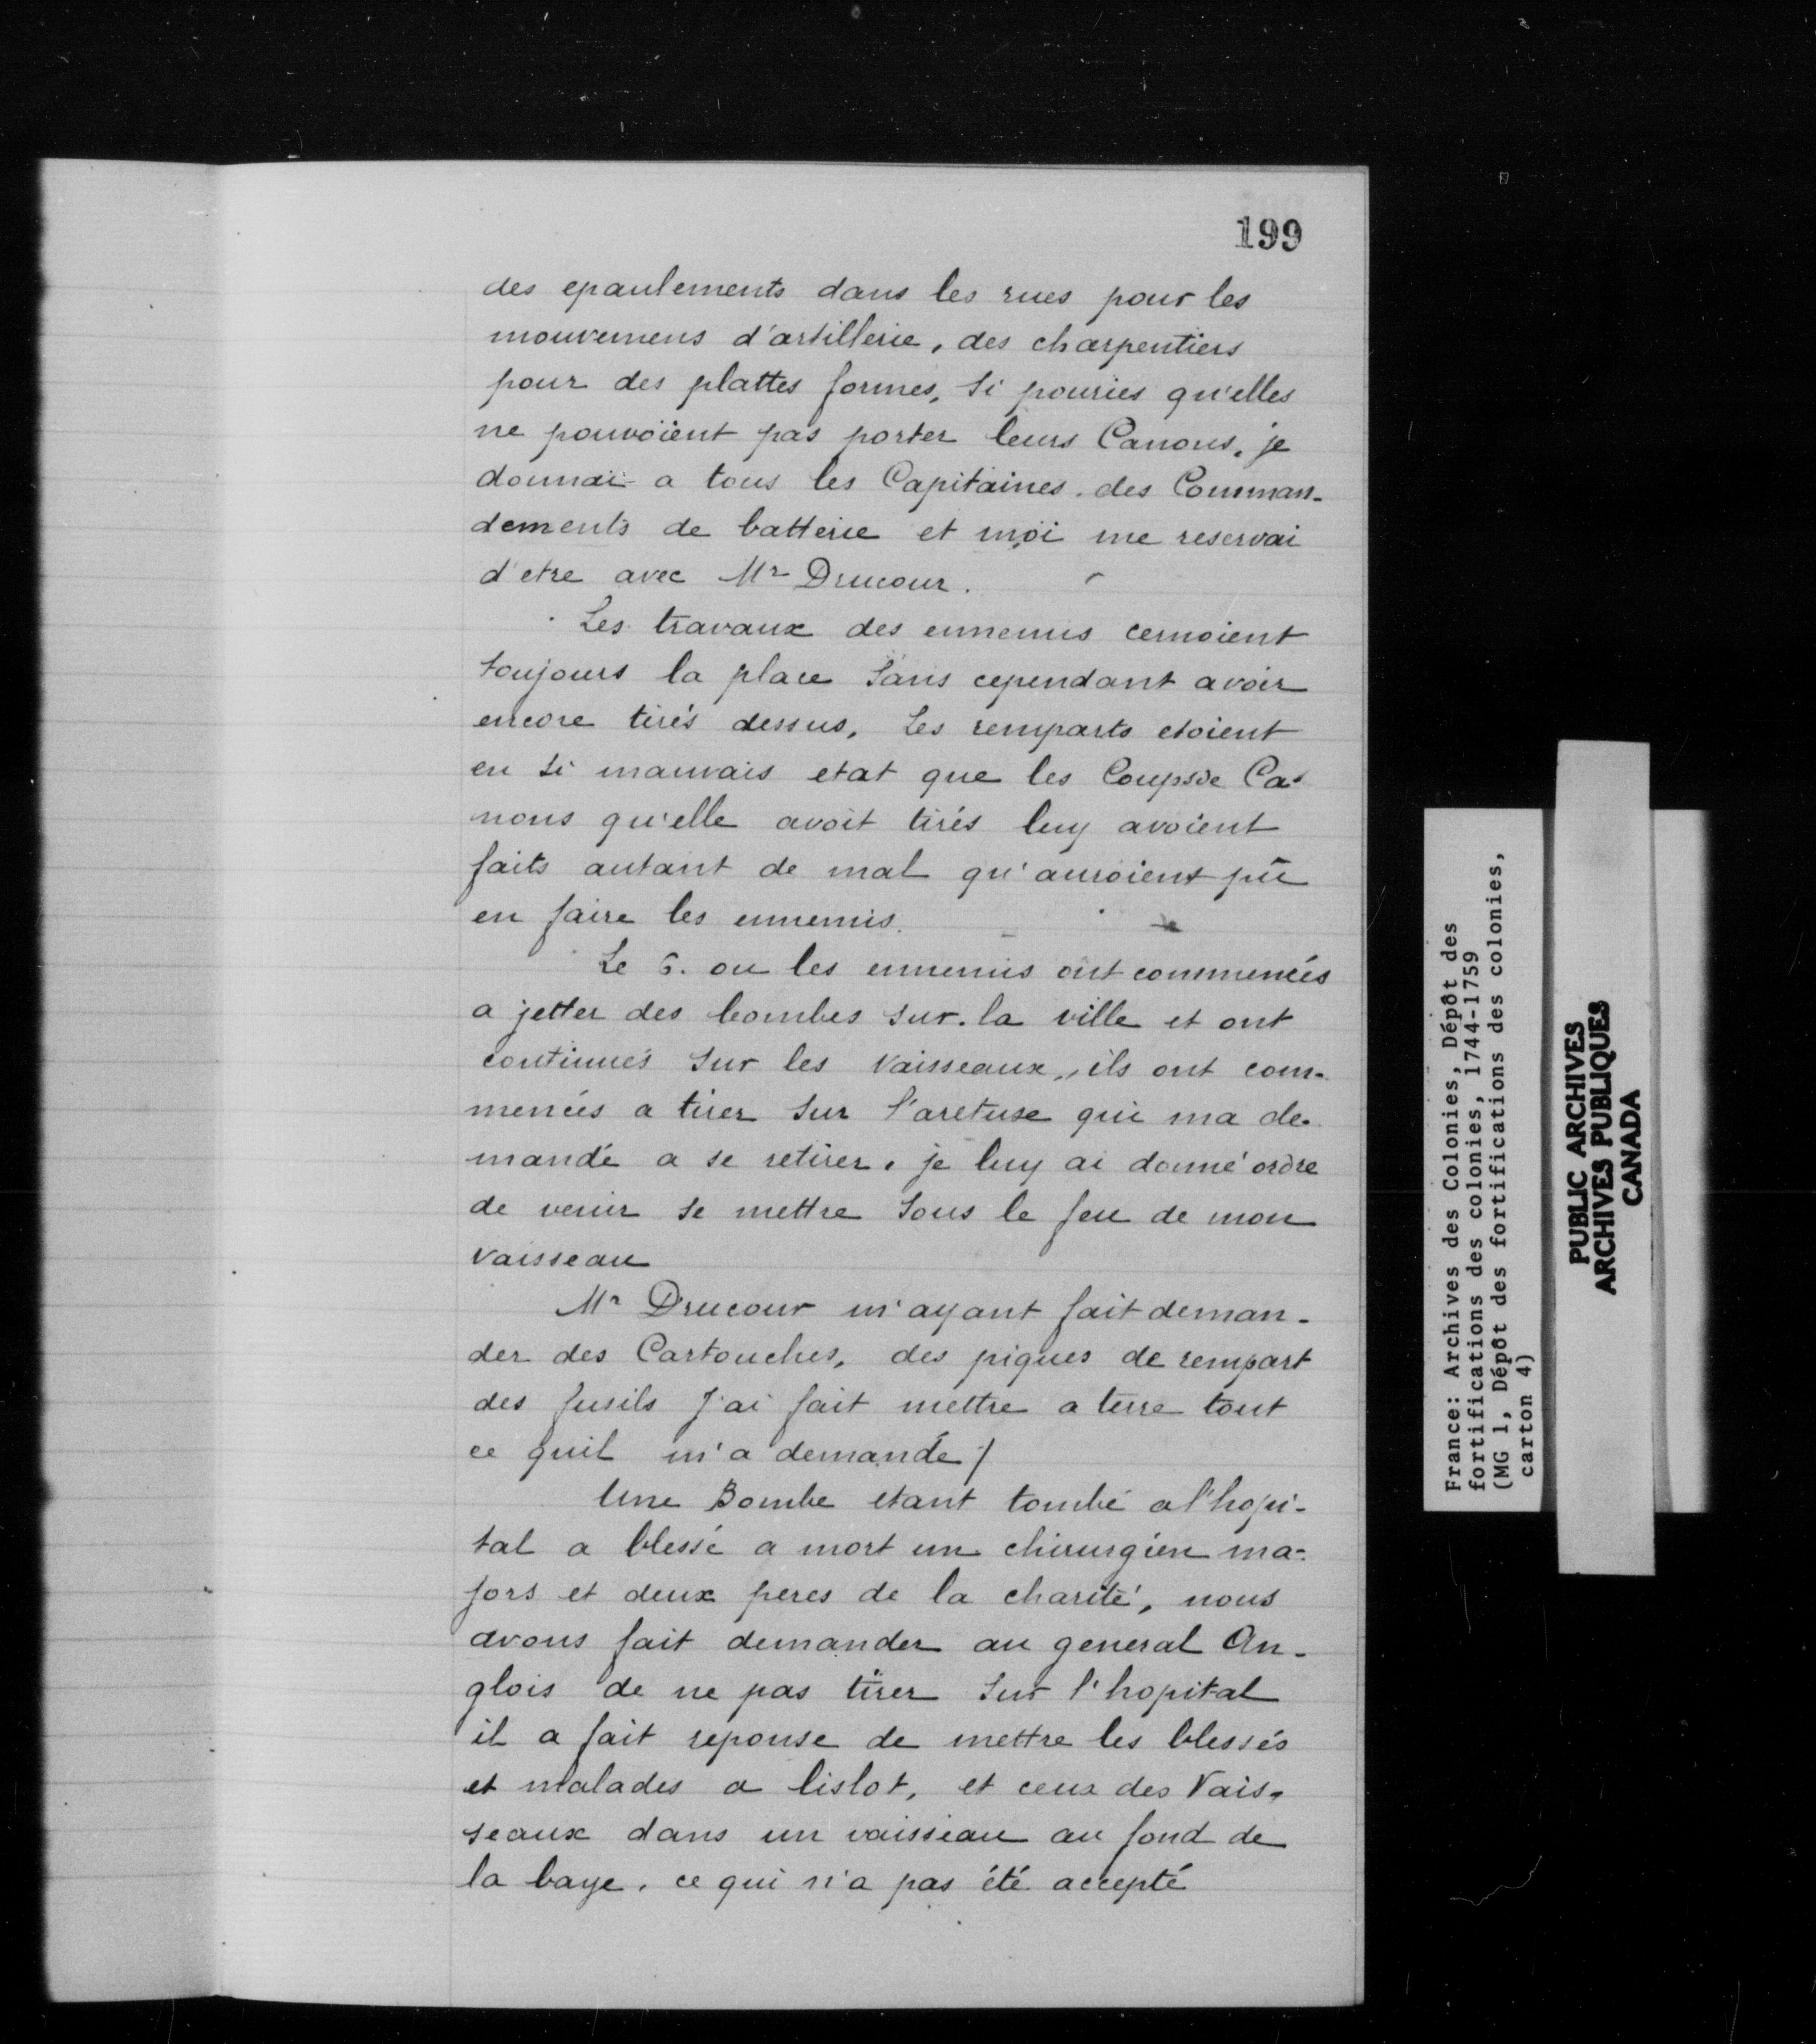 199
des epaulements dans les rues pour les
mouvemens d'artillerie, des charpentiers
pour des plattes formes, si pouries qu'elles
ne pouvoient pas porter leurs Canons, je
donnai a tous les Capitaines des Comman-
dements de batterie et moi me reservai
d'etre avec Mr Drucour.
Les travaux des ennemis cernoient
toujours la place sans cependant avoir
encore tirés dessus, Les remparts etoient
en si mauvais etat que les Coups de Ca-
nons qu'elle avoit tirés luy avoient
faits autant de mal qu'auroient pû
en faire les ennemis.
Le 6. ou les ennemis ont commencés
a jetter des bombes sur la ville et ont
continués sur les Vaisseaux, ils ont com-
mencés a tirer sur l'aretuse qui ma de-
mandé a se retirer, je luy ai donné ordre
de venir se mettre sous le feu de mon
vaisseau
Mr Drucour m'ayant fait deman-
der des Cartouches, des piques de rempart
des fusils J'ai fait mettre a terre tout
ce quil m'a demandé /
Une Bombe etant tombé a l'hopi-
tal a blessé a mort un chirurgien ma-
jors et deux peres de la charité, nous
avons fait demander au general An-
glois de ne pas tirer sur l'hopital
il a fait reponse de mettre les blessés
et malades a lislot, et ceux des Vais-
seaux dans un vaisseau au fond de
la baye, ce qui n'a pas été accepté
France: Archives des Colonies, Dépôt des
fortifications des colonies, 1744-1759
(MG 1, Dépôt des fortifications des colonies,
carton 4)
PUBLIC ARCHIVES
ARCHIVES PUBLIQUES
CANADA